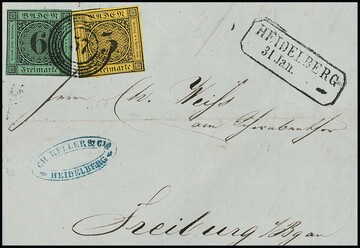 BADEN
6
Freimarke
BADEN
3
Freimarke
HEIDELBERG
31 Jan.
Herrn Ch. Weiss
am
CH. KELLER & Cie
HEIDELBERG
Freiburg